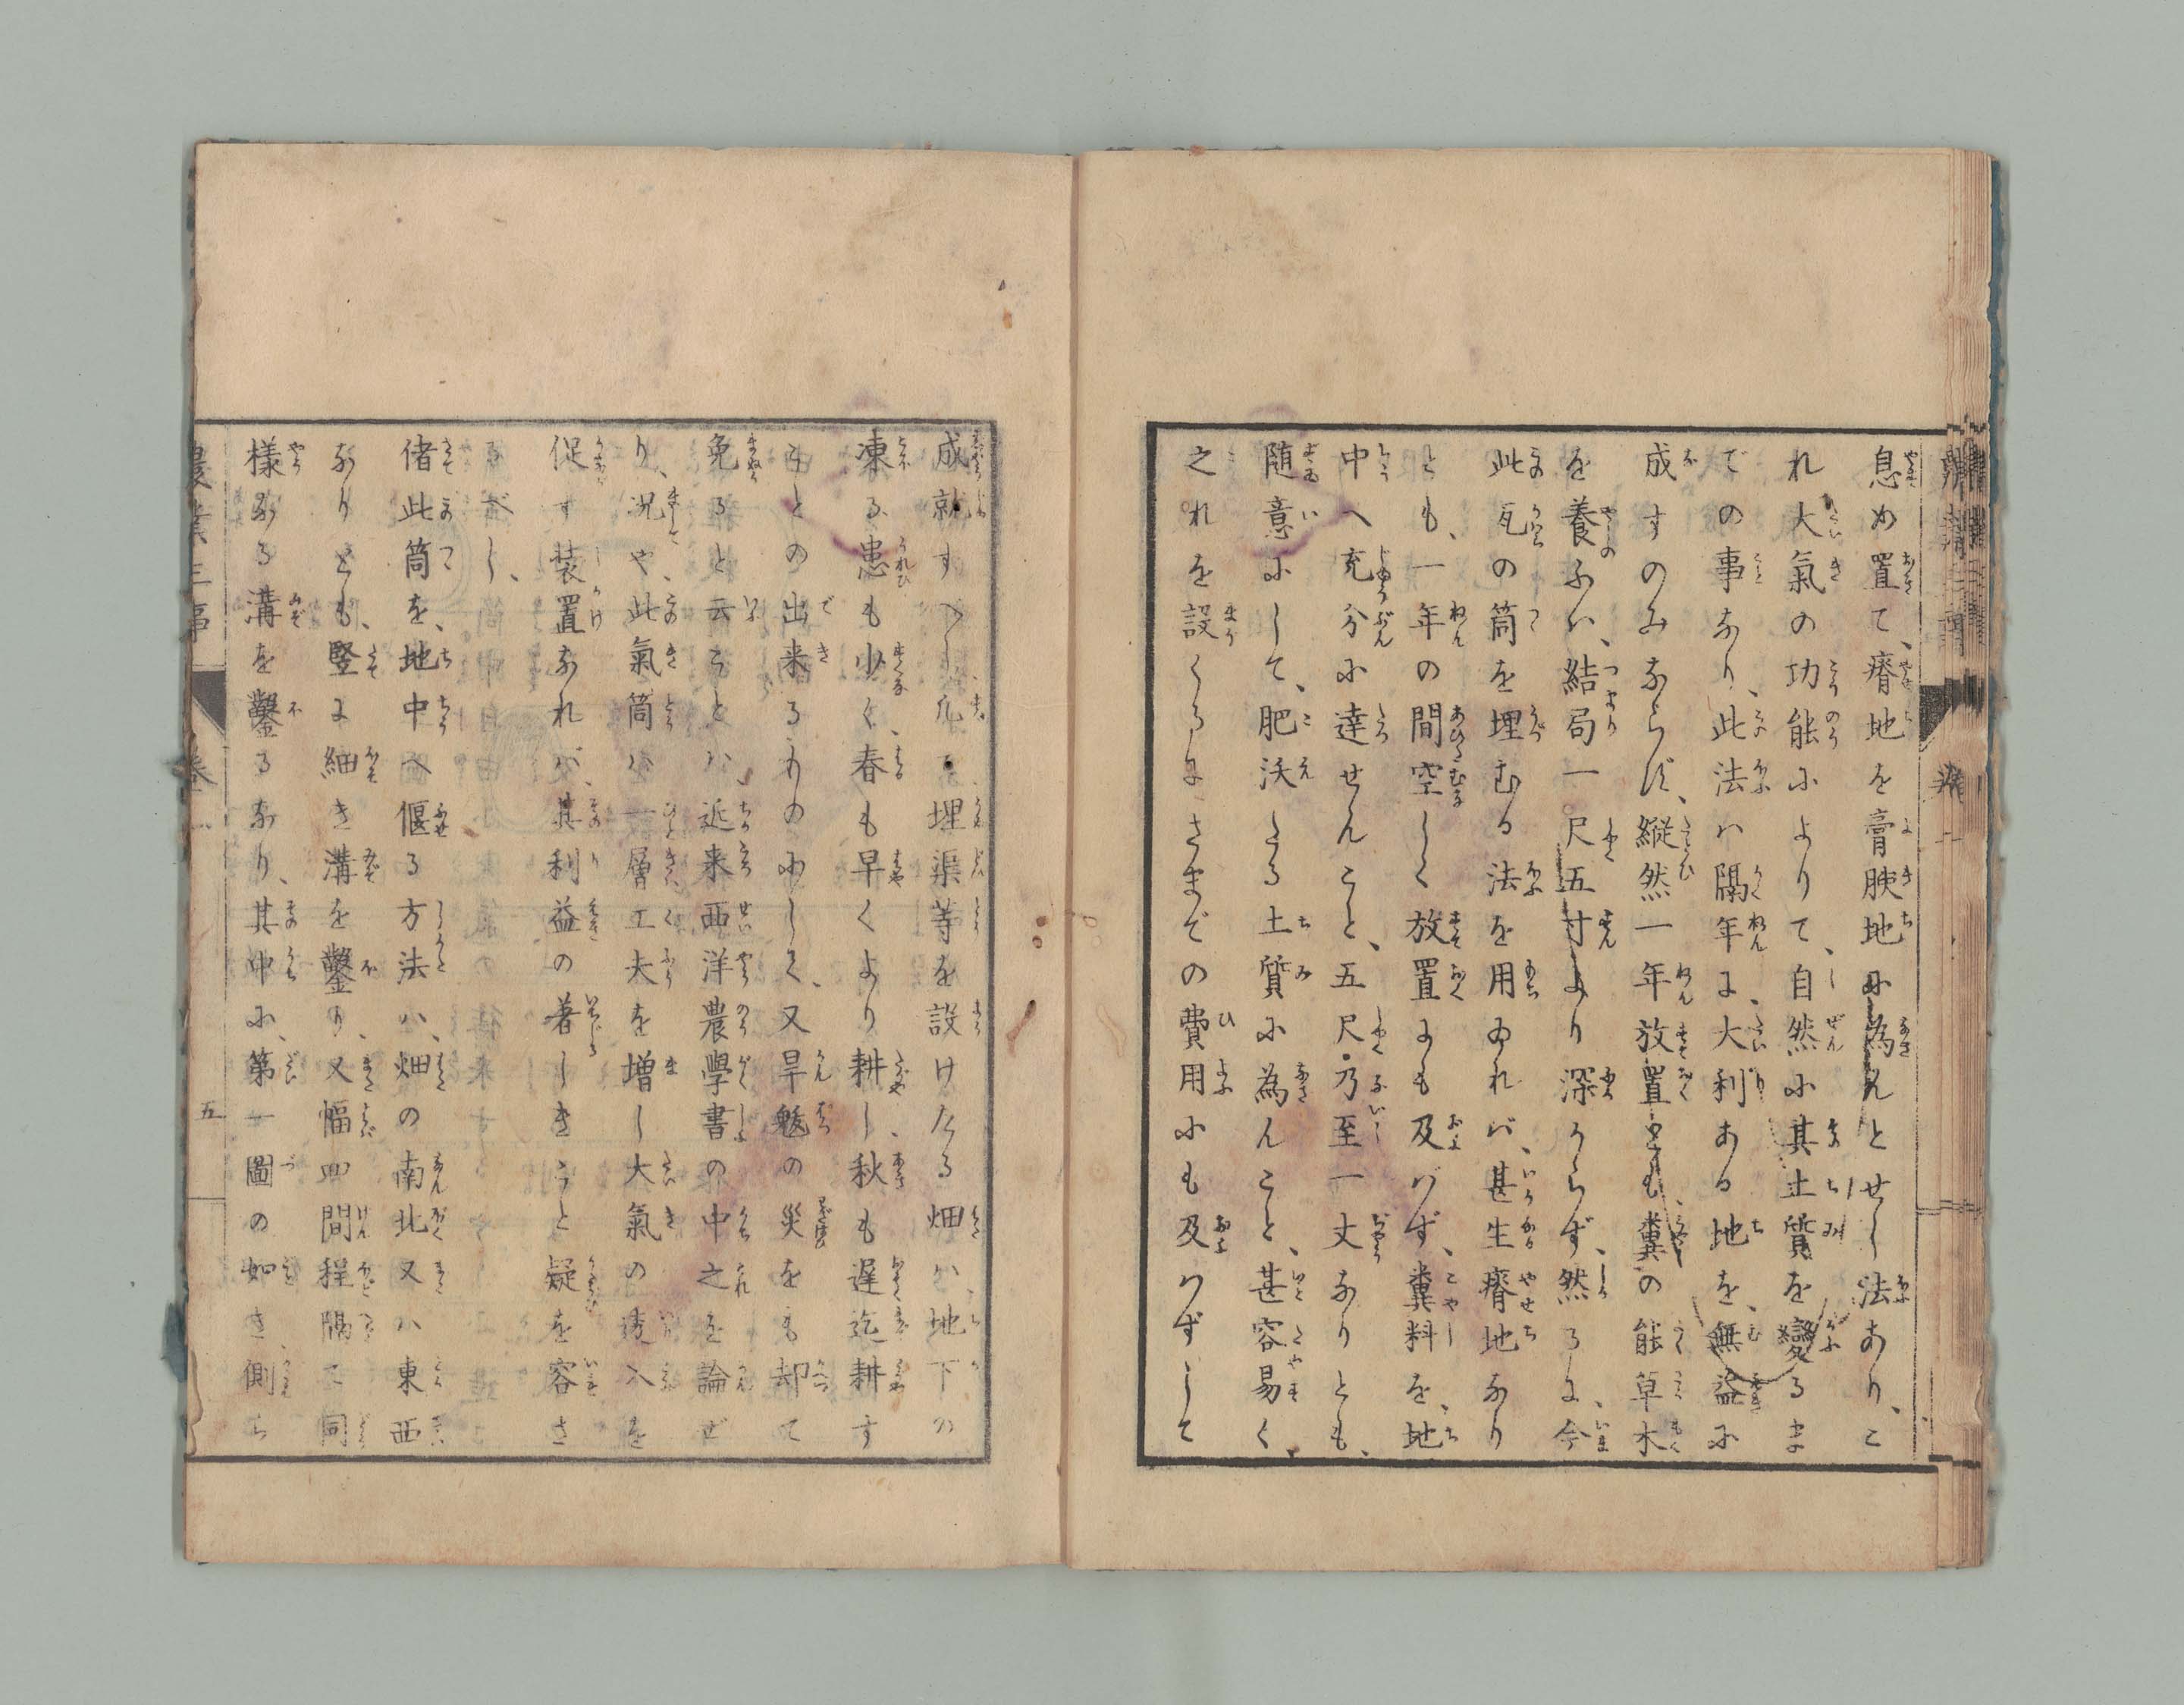 息め置て、瘠地を膏腴地に為んとせし法あり、こ
れ大氣の功能によりて、自然に其土質を變るま
での事なり、此法ハ隔年に、大利ある地を、無益に
成すのみならず、縦然一年放置とも、糞の能草木
を養ふハ、結局一尺五寸より深からず、然るに、今
此瓦の筒を埋むる法を用ゐれバ、甚生瘠地なり
とも、一年の間空しく放置にも及バず、糞料を、地
中へ充分に達せんこと、五尺乃至一丈なりとも、
随意にして、肥沃たる土質に為んこと、甚容易く、
之れを設くるにさまでの費用にも及バずして
成就すべし、凡そ、埋渠等を設けたる畑ハ、地下の
凍る患も少く、春も早くより耕し、秋も遅迄耕す
ことの出来るものにして、又旱魃の災をも却て
免ると云ことハ、近来西洋農學書の中之を論ぜ
り、况や、此氣筒ハ一層工夫を増し大氣の透入を
促す装置なれバ、其利益の著しきこと疑を容さ
るべし、
偖此筒を、地中へ偃る方法ハ、畑の南北又ハ東西
なりとも、竪に細き溝を鑿り、又幅四間程隔て同
様なる溝を鑿るなり、其中に、第一圖の如き側ら
農業三事 卷一 五